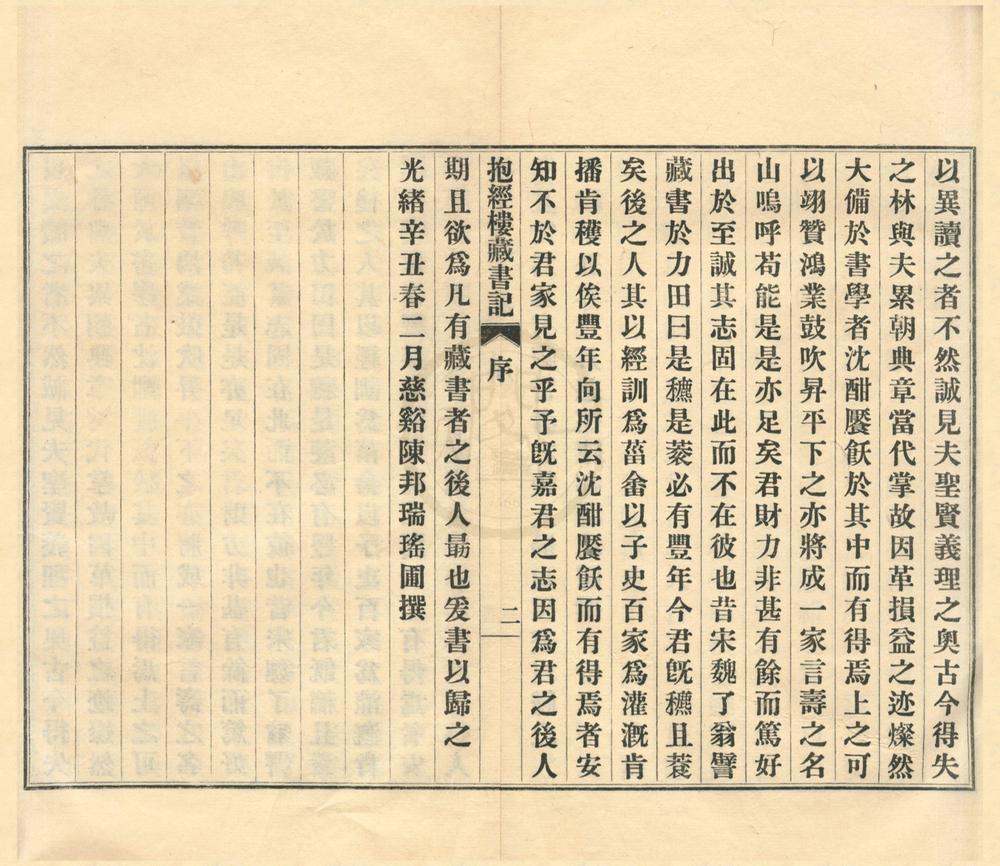 以異讀之者不然誠見夫聖賢義理之奧古今得失
之林與夫累朝典章當代掌故因革損益之迹燦然
大備於書學者沈酣饜飫於其中而有得焉上之可
以翊贊鴻業鼓吹昇平下之亦將成一家言壽之名
山嗚呼苟能是是亦足矣君財力非甚有餘而篤好
出於至誠其志固在此而不在彼也昔宋魏了翁譬
藏書於力田曰是穮是蓘必有豐年今君旣穮且蓘
矣後之人其以經訓爲菑畬以子史百家爲灌漑肯
播肯穫以俟豐年向所云沈酣饜飫而有得焉者安
知不於君家見之乎予旣嘉君之志因爲君之後人
抱經樓藏書記 序 二
期且欲爲凡有藏書者之後人勗也爰書以歸之
光緒辛丑春二月慈谿陳邦瑞瑤圃撰